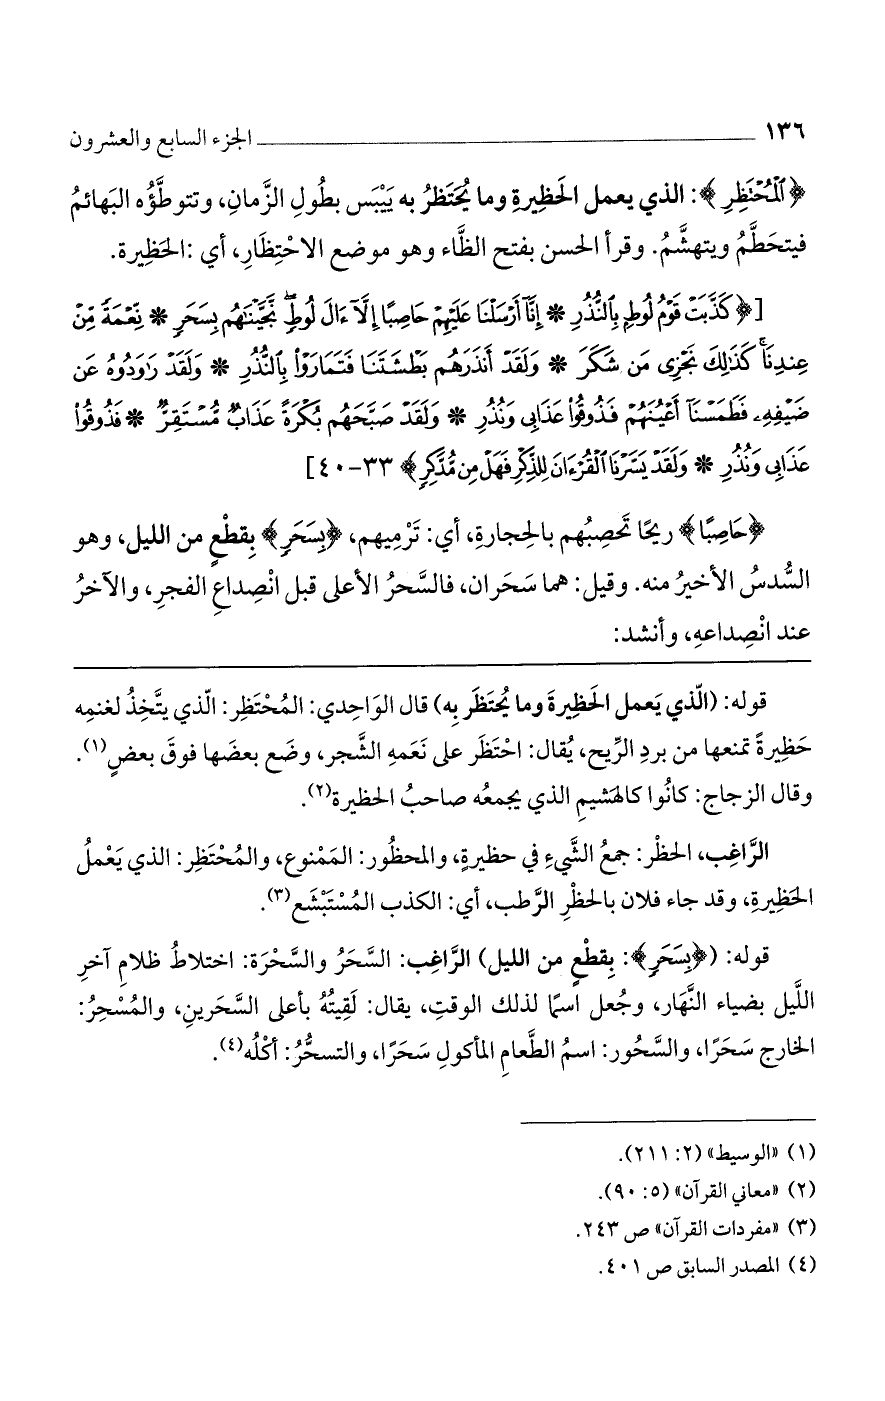 ١٣٦ ــــــــــــــــــــ الجزء السابع والعشرون
﴿ٱلْمُحْتَظِرِ﴾: الذي يعمل الحَظِيرةِ وما يُحتَظرُ به يَيْبَس بطُولِ الزَّمانِ، وتتوطَّؤُه البَهائمُ
فيتحَطَّمُ ويتهشَّمُ. وقرأ الحسن بفتح الظَّاء وهو موضع الاحْتِظَارِ، أي :الحَظِيرة.
[﴿كَذَّبَتْ قَوْمُ لُوطٍۭ بِٱلنُّذُرِ * إِنَّآ أَرْسَلْنَا عَلَيْهِمْ حَاصِبًا إِلَّآ ءَالَ لُوطٍۖ نَّجَّيْنَٰهُم بِسَحَرٍ * نِّعْمَةً مِّنْ
عِندِنَاۚ كَذَٰلِكَ نَجْزِى مَن شَكَرَ * وَلَقَدْ أَنذَرَهُم بَطْشَتَنَا فَتَمَارَوْا۟ بِٱلنُّذُرِ * وَلَقَدْ رَٰوَدُوهُ عَن
ضَيْفِهِۦ فَطَمَسْنَآ أَعْيُنَهُمْ فَذُوقُوا۟ عَذَابِى وَنُذُرِ * وَلَقَدْ صَبَّحَهُم بُكْرَةً عَذَابٌ مُّسْتَقِرٌّ * فَذُوقُوا۟
عَذَابِى وَنُذُرِ * وَلَقَدْ يَسَّرْنَا ٱلْقُرْءَانَ لِلذِّكْرِ فَهَلْ مِن مُّدَّكِرٍ﴾ ٣٣-٤٠]
﴿حَاصِبًا﴾ ريحًا تَحصِبُهم بالحِجارةِ، أي: تَرْمِيهم، ﴿بِسَحَرٍ﴾ بِقطْعٍ من الليل، وهو
السُّدسُ الأخيرُ منه. وقيل: هما سَحَران، فالسَّحرُ الأعلى قبل انْصِداعِ الفجرِ، والآخرُ
عند انْصِداعهِ، وأنشد:
قوله: (الّذي يَعمل الحَظِيرةَ وما يُحتَظَر بِه) قال الوَاحِدي: المُحْتَظِر: الّذي يتَّخِذُ لغنمِه
حَظِيرةً تمنعها من بردِ الرِّيح، يُقال: احْتَظَر على نَعَمهِ الشَّجر، وضَع بعضَها فوقَ بعضٍ(١).
وقال الزجاج: كانُوا كالهَشيمِ الذي يجمعُه صاحبُ الحظيرة(٢).
الرَّاغِب، الحظْر: جمعُ الشَّيءِ في حظيرةٍ، والمحظُور: المَمْنوع، والمُحْتَظِر: الذي يَعْملُ
الحَظِيرةِ، وقد جاء فلان بالحظْرِ الرَّطب، أي: الكذب المُسْتَبْشَع(٣).
قوله: (﴿بِسَحَرٍ﴾: بِقطْعٍ من الليل) الرَّاغِب: السَّحَرُ والسَّحْرَة: اختلاطُ ظلامِ آخرِ
اللَّيل بضياء النَّهَار، وجُعل اسمًا لذلك الوقتِ، يقال: لَقِيتُهُ بأعلى السَّحَرينِ، والمُسْحِرُ:
الخارج سَحَرًا، والسَّحُور: اسمُ الطَّعامِ المأكولِ سَحَرًا، والتسحُّرُ: أكْلُه(٤).
(١) «الوسيط» (٢: ٢١١).
(٢) «معاني القرآن» (٥: ٩٠).
(٣) «مفردات القرآن» ص ٢٤٣.
(٤) المصدر السابق ص ٤٠١.